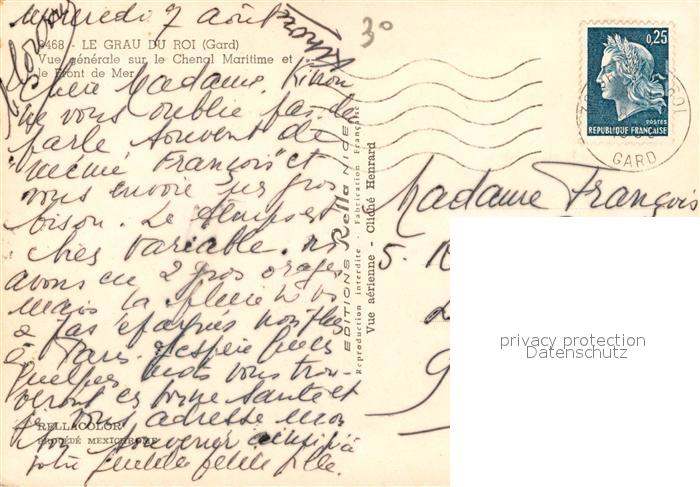 Mercredi 7 Août
3°
9468 - LE GRAU DU ROI (Gard)
Vue générale sur le Chenal Maritime et
le Front de Mer
Chère Madame. Simon
ne vous oublie pas. Je
parle souvent de
"mémé François" et
vous envoie ses gros
bison. Le temps est
très variable. ns
avons eu 2 gros orages
mais la pluie ne ns
a pas épargnés non plus
à Paris. J'espère que ces
quelques mots vous trou-
veront en bonne santé et
je vous adresse mon
bon souvenir ainsi qu'à
votre gentille petite fille.
RELLACOLOR
PROCÉDÉ MEXICHROME
EDITIONS Rella NICE
Reproduction interdite - Fabrication Française
Vue aérienne - Cliché Henrard
0,25
POSTES
REPUBLIQUE FRANÇAISE
GARD
Madame François
5.
privacy protection
Datenschutz